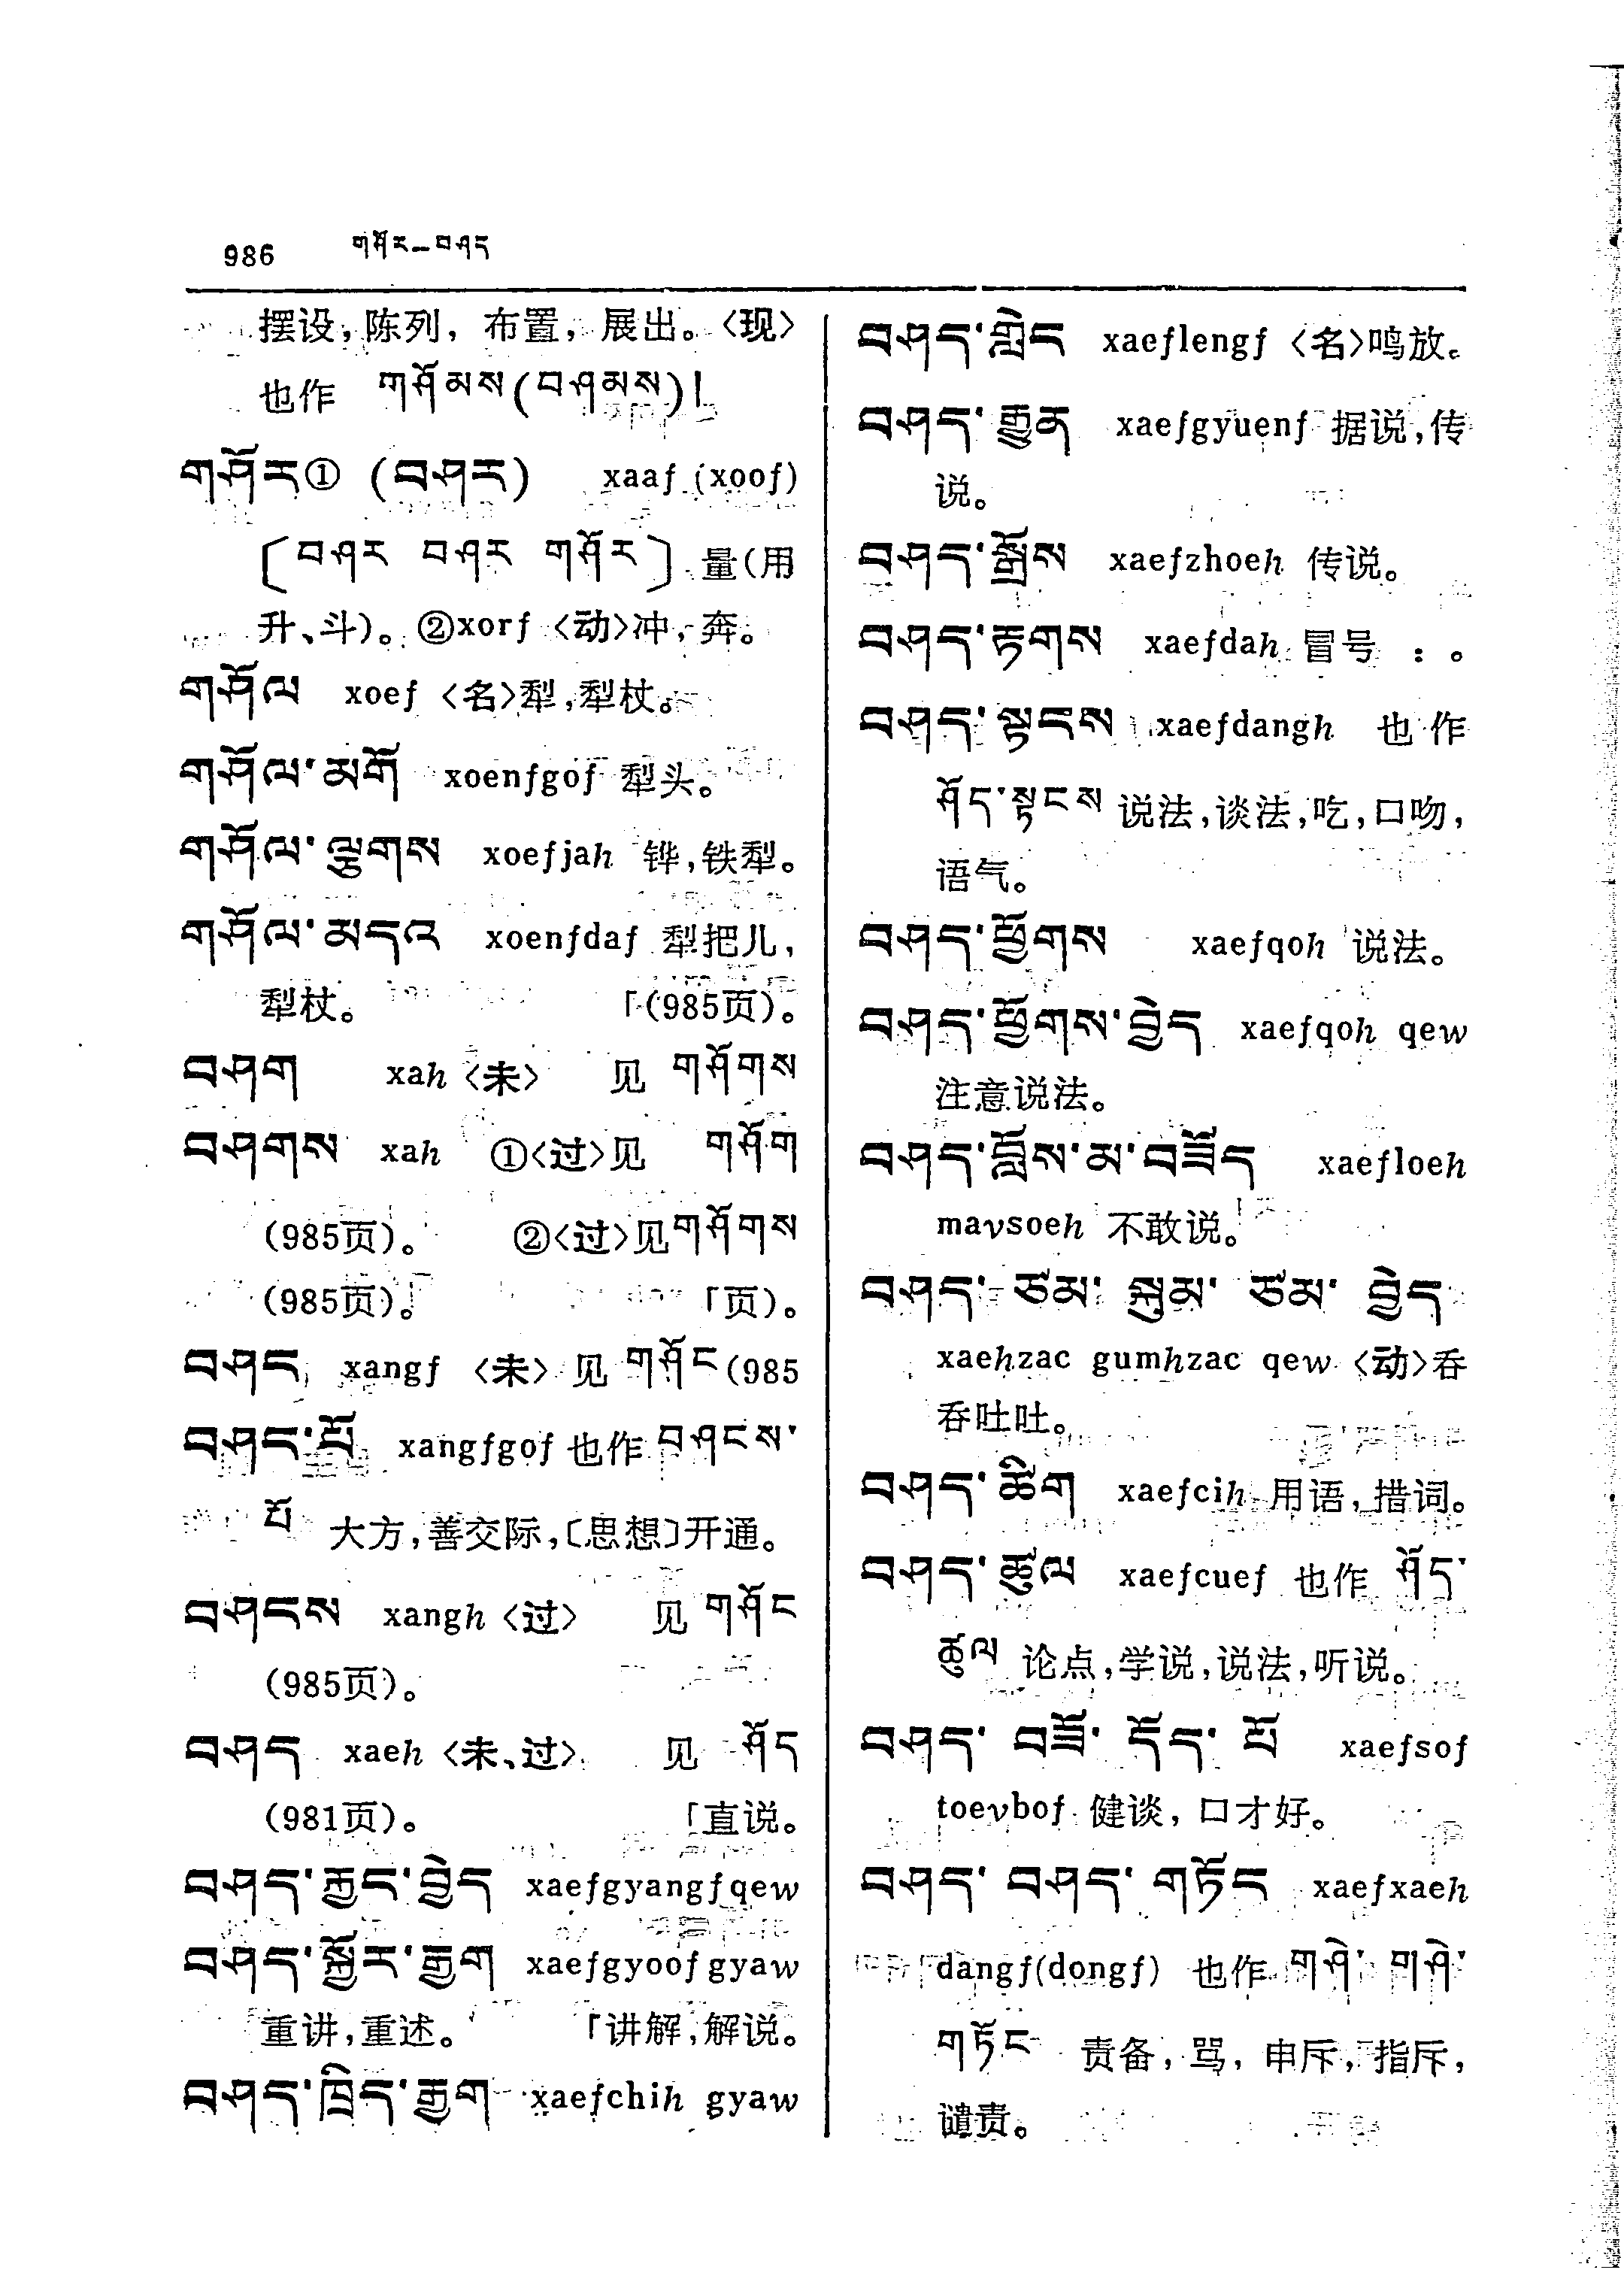 986 གཤོར–བཤད
摆设,陈列, 布置, 展出。〈现〉
也作 གཤོམས(བཤམས)།
གཤོར① (བཤར) xaaf (xoof)
〔བཤར བཤར གཤོར〕 量(用
升、斗)。②xorf 〈动〉冲, 奔。
གཤོལ xoef 〈名〉犁,犁杖。
གཤོལ་མགོ xoenfgof 犁头。
གཤོལ་ལྕགས xoefjah 铧,铁犁。
གཤོལ་མདའ xoenfdaf 犁把儿,
犁杖。 「(985页)。
བཤག xah 〈未〉 见 གཤོགས
བཤགས xah ①〈过〉见 གཤོག
(985页)。 ②〈过〉见གཤོགས
(985页)。 「页)。
བཤང xangf 〈未〉 见 གཤོང(985
བཤང་པོ xangfgof 也作 བཤངས་
པོ 大方,善交际,〔思想〕开通。
བཤངས xangh 〈过〉 见 གཤོང
(985页)。
བཤད xaeh 〈未、过〉 见 ཤོད
(981页)。 「直说。
བཤད་རྐྱང་བྱེད xaefgyangfqew
བཤད་སྐྱོར་རྒྱག xaefgyoofgyaw
重讲,重述。 「讲解,解说。
བཤད་ཁྲིད་རྒྱག xaefchih gyaw
བཤད་གླེང xaeflengf 〈名〉鸣放。
བཤད་རྒྱུན xaefgyuenf 据说,传
说。
བཤད་སྒྲོས xaefzhoeh 传说。
བཤད་རྟགས xaefdah 冒号 : 。
བཤད་སྟངས xaefdangh 也作
ཤོད་སྟངས 说法,谈法,吃,口吻,
语气。
བཤད་ཕྱོགས xaefqoh 说法。
བཤད་ཕྱོགས་བྱེད xaefqoh qew
注意说法。
བཤད་བློས་མ་བཟོད xaefloeh
mavsoeh 不敢说。
བཤད་ ཙམ་ སྐུམ་ ཙམ་ བྱེད
xaehzac gumhzac qew 〈动〉吞
吞吐吐。
བཤད་ཚིག xaefcih 用语,措词。
བཤད་ཚུལ xaefcuef 也作 ཤོད་
ཚུལ 论点,学说,说法,听说。
བཤད་ བཟོ་ དོད་ པོ xaefsof
toevbof 健谈, 口才好。
བཤད་ བཤད་ གཏོང xaefxaeh
dangf(dongf) 也作 གཤེ་ གཤེ་
གཏོང 责备, 骂, 申斥, 指斥,
谴责。